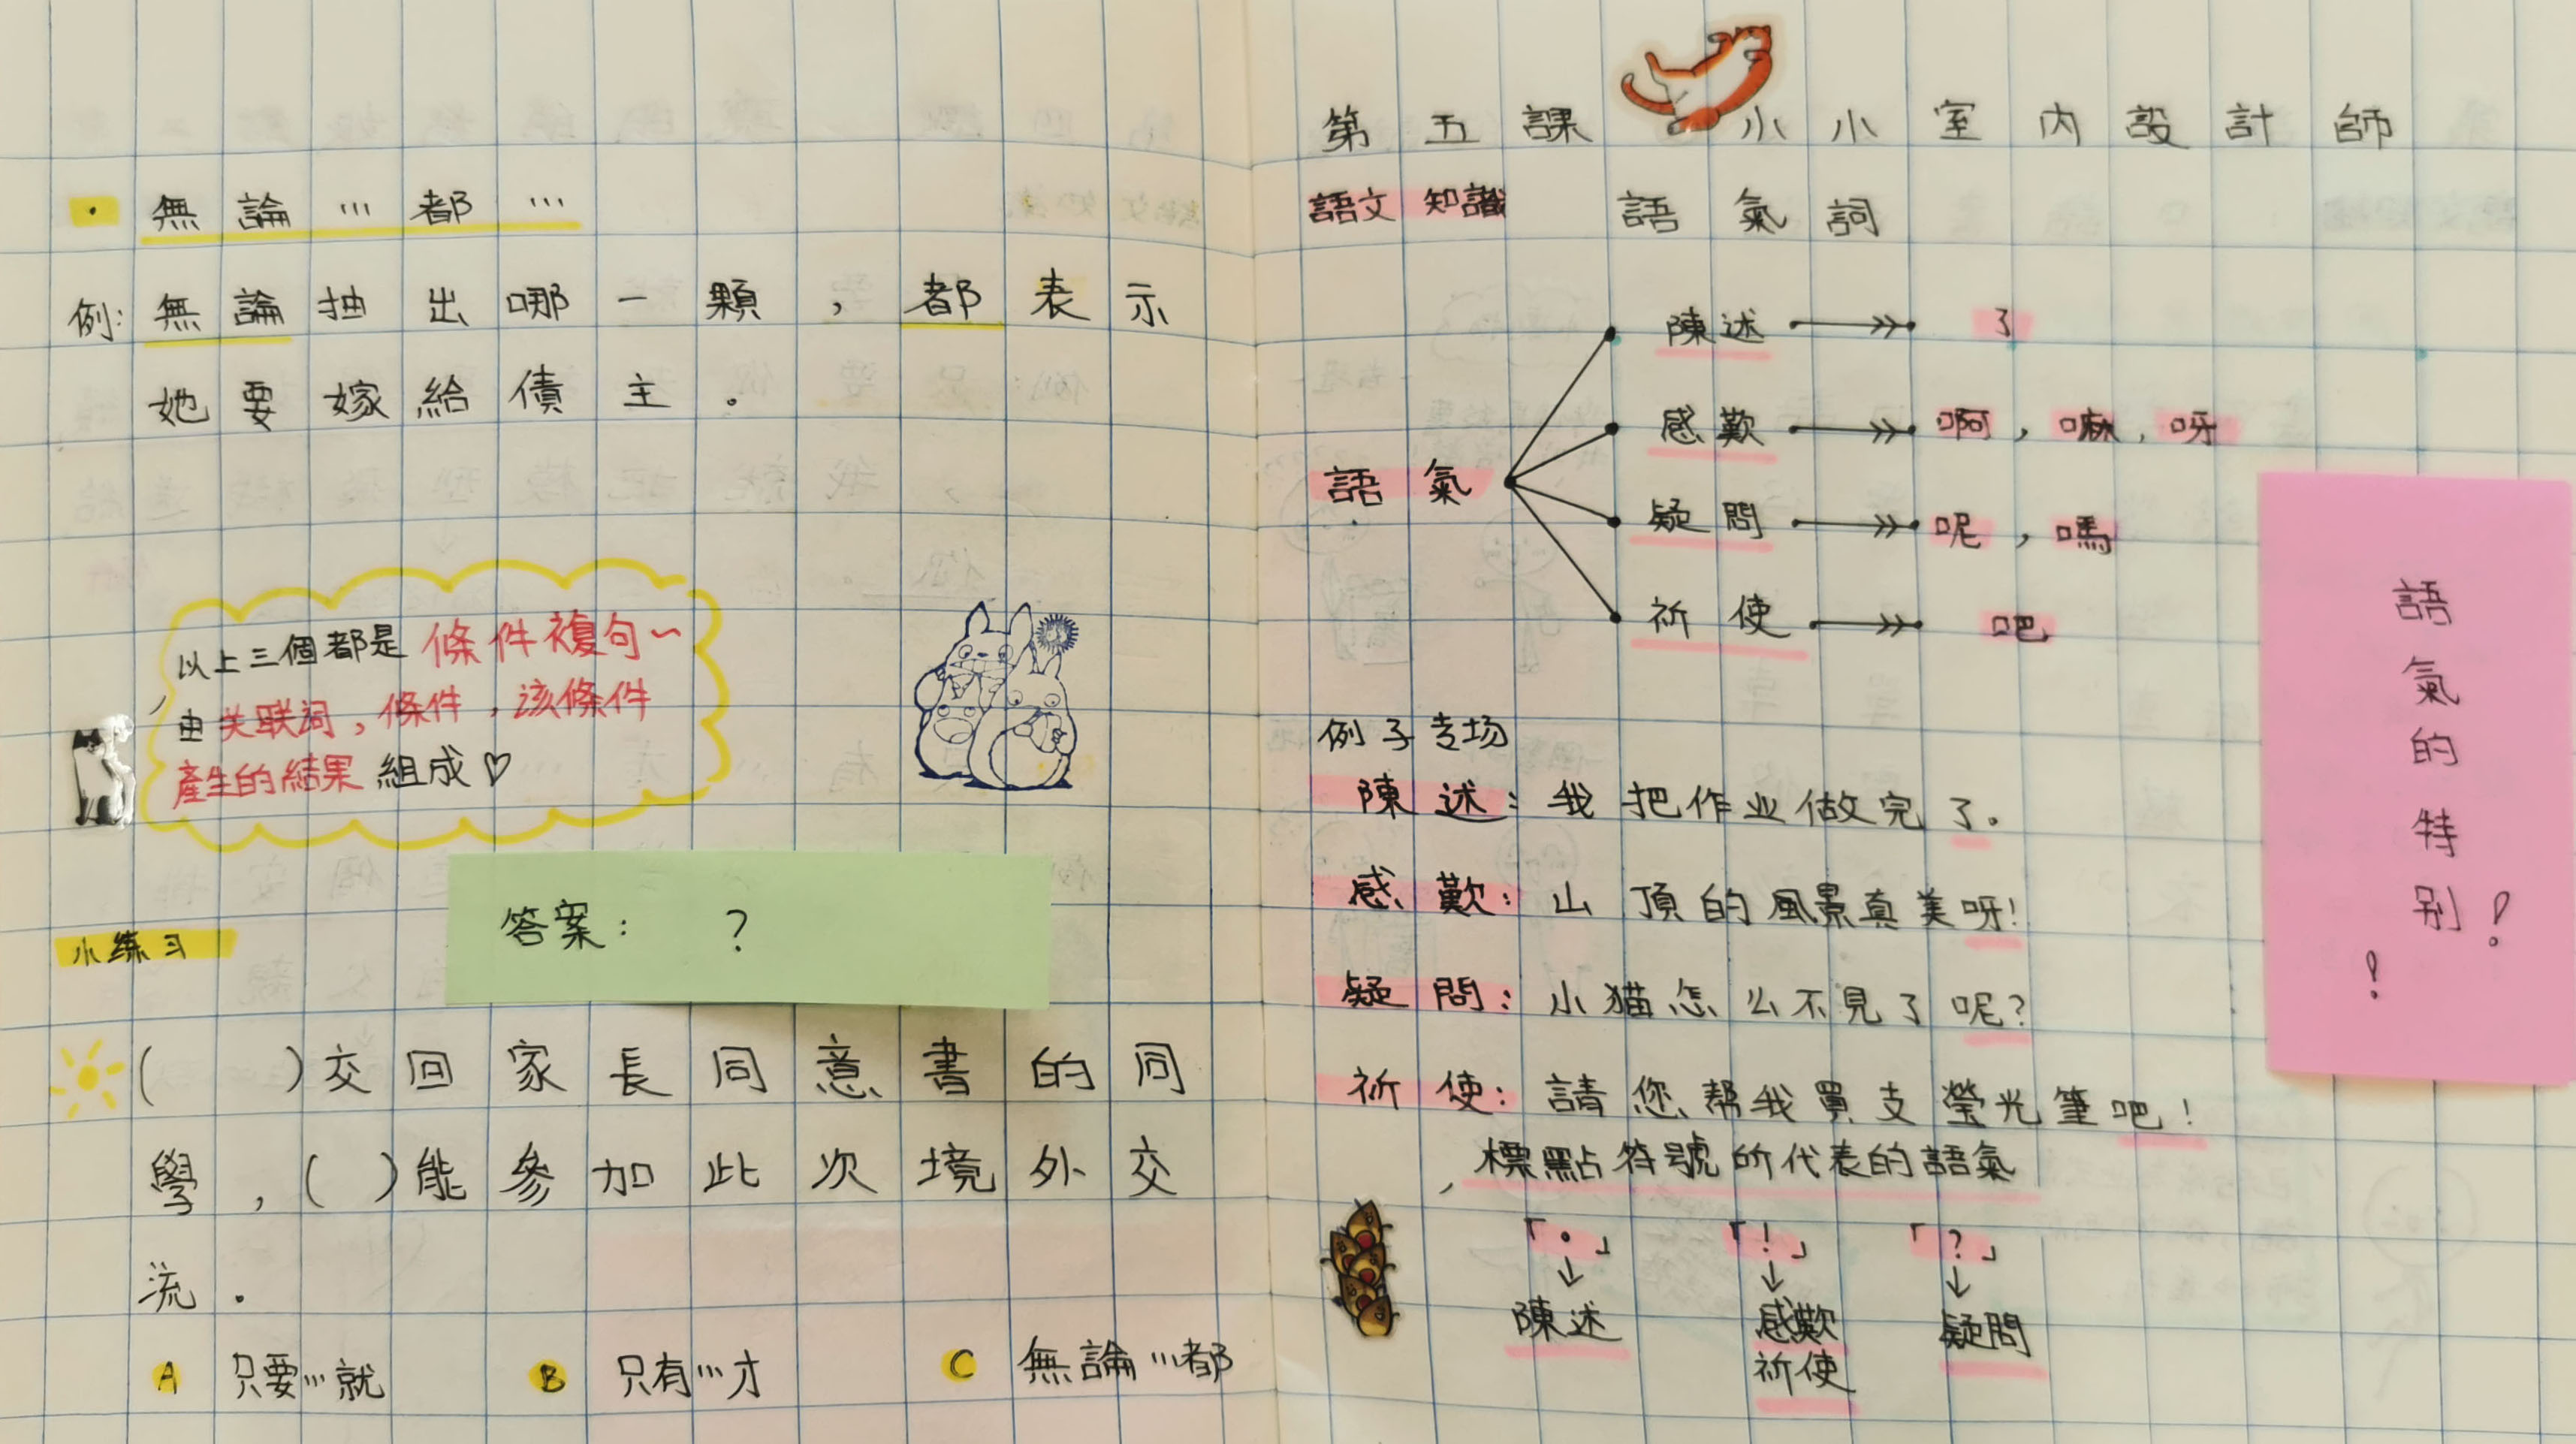 無論…都…
例:無論抽出哪一顆，都表示
她要嫁給債主。
以上三個都是條件複句~
由关联詞，條件，該條件
產生的結果組成♡
答案： ?
小练习
( )交回家長同意書的同
學，( )能參加此次境外交
流.
A 只要…就 B 只有…才 C 無論…都
第五課 小小室內設計師
語文知識 語氣詞
語氣
陳述 了
感歎 啊，嘛，呀
疑問 呢，嗎
祈使 吧
例子专场
陳述：我把作业做完了。
感歎：山頂的風景真美呀!
疑問：小猫怎么不見了呢?
祈使：請您帮我買支螢光筆吧!
標點符號所代表的語氣
「。」 「!」 「?」
↓ ↓ ↓
陳述 感歎 疑問
祈使
語氣的特別!!